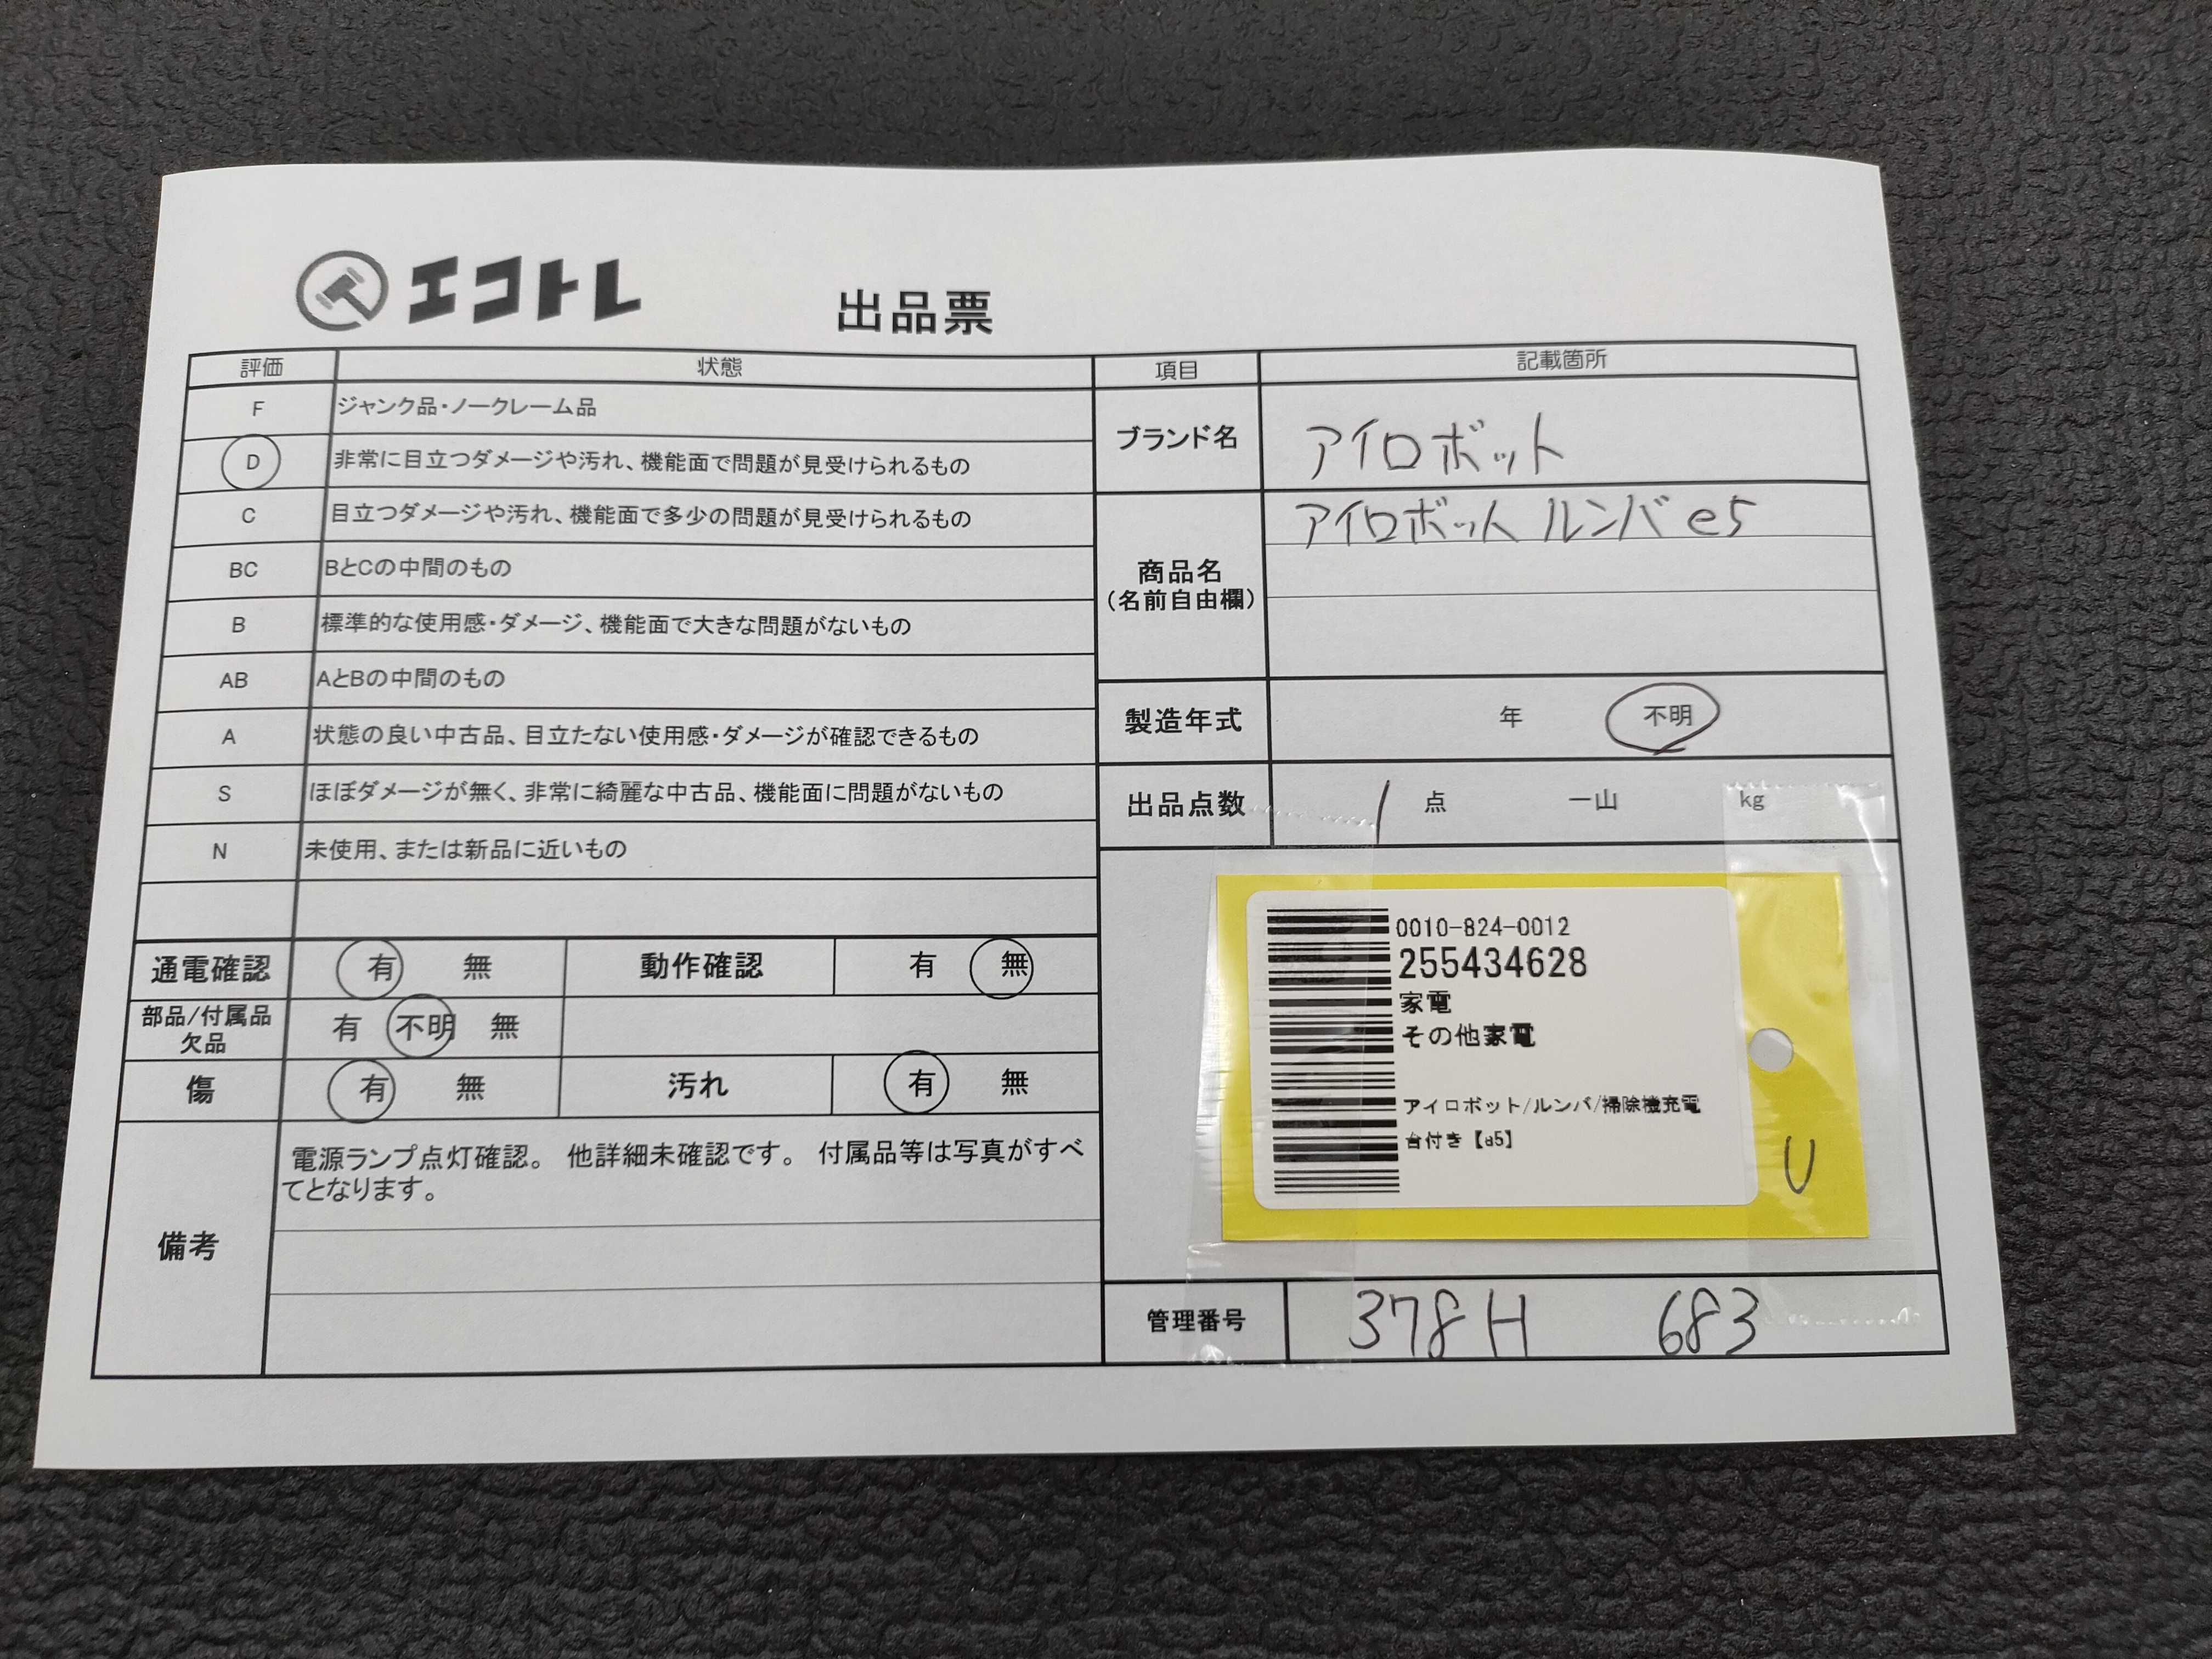 エコトレ
出品票
評価 状態
F ジャンク品・ノークレーム品
D 非常に目立つダメージや汚れ、機能面で問題が見受けられるもの
C 目立つダメージや汚れ、機能面で多少の問題が見受けられるもの
BC BとCの中間のもの
B 標準的な使用感・ダメージ、機能面で大きな問題がないもの
AB AとBの中間のもの
A 状態の良い中古品、目立たない使用感・ダメージが確認できるもの
S ほぼダメージが無く、非常に綺麗な中古品、機能面に問題がないもの
N 未使用、または新品に近いもの
通電確認 有 無 動作確認 有 無
部品/付属品
欠品
有 不明 無
傷 有 無 汚れ 有 無
備考
電源ランプ点灯確認。 他詳細未確認です。 付属品等は写真がすべ
てとなります。
項目 記載箇所
ブランド名 アイロボット
商品名
(名前自由欄)
アイロボット ルンバ e5
製造年式 年 不明
出品点数 1 点 一山 kg
0010-824-0012
255434628
家電
その他家電
アイロボット/ルンバ/掃除機充電
台付き【e5】
U
管理番号 378H 683